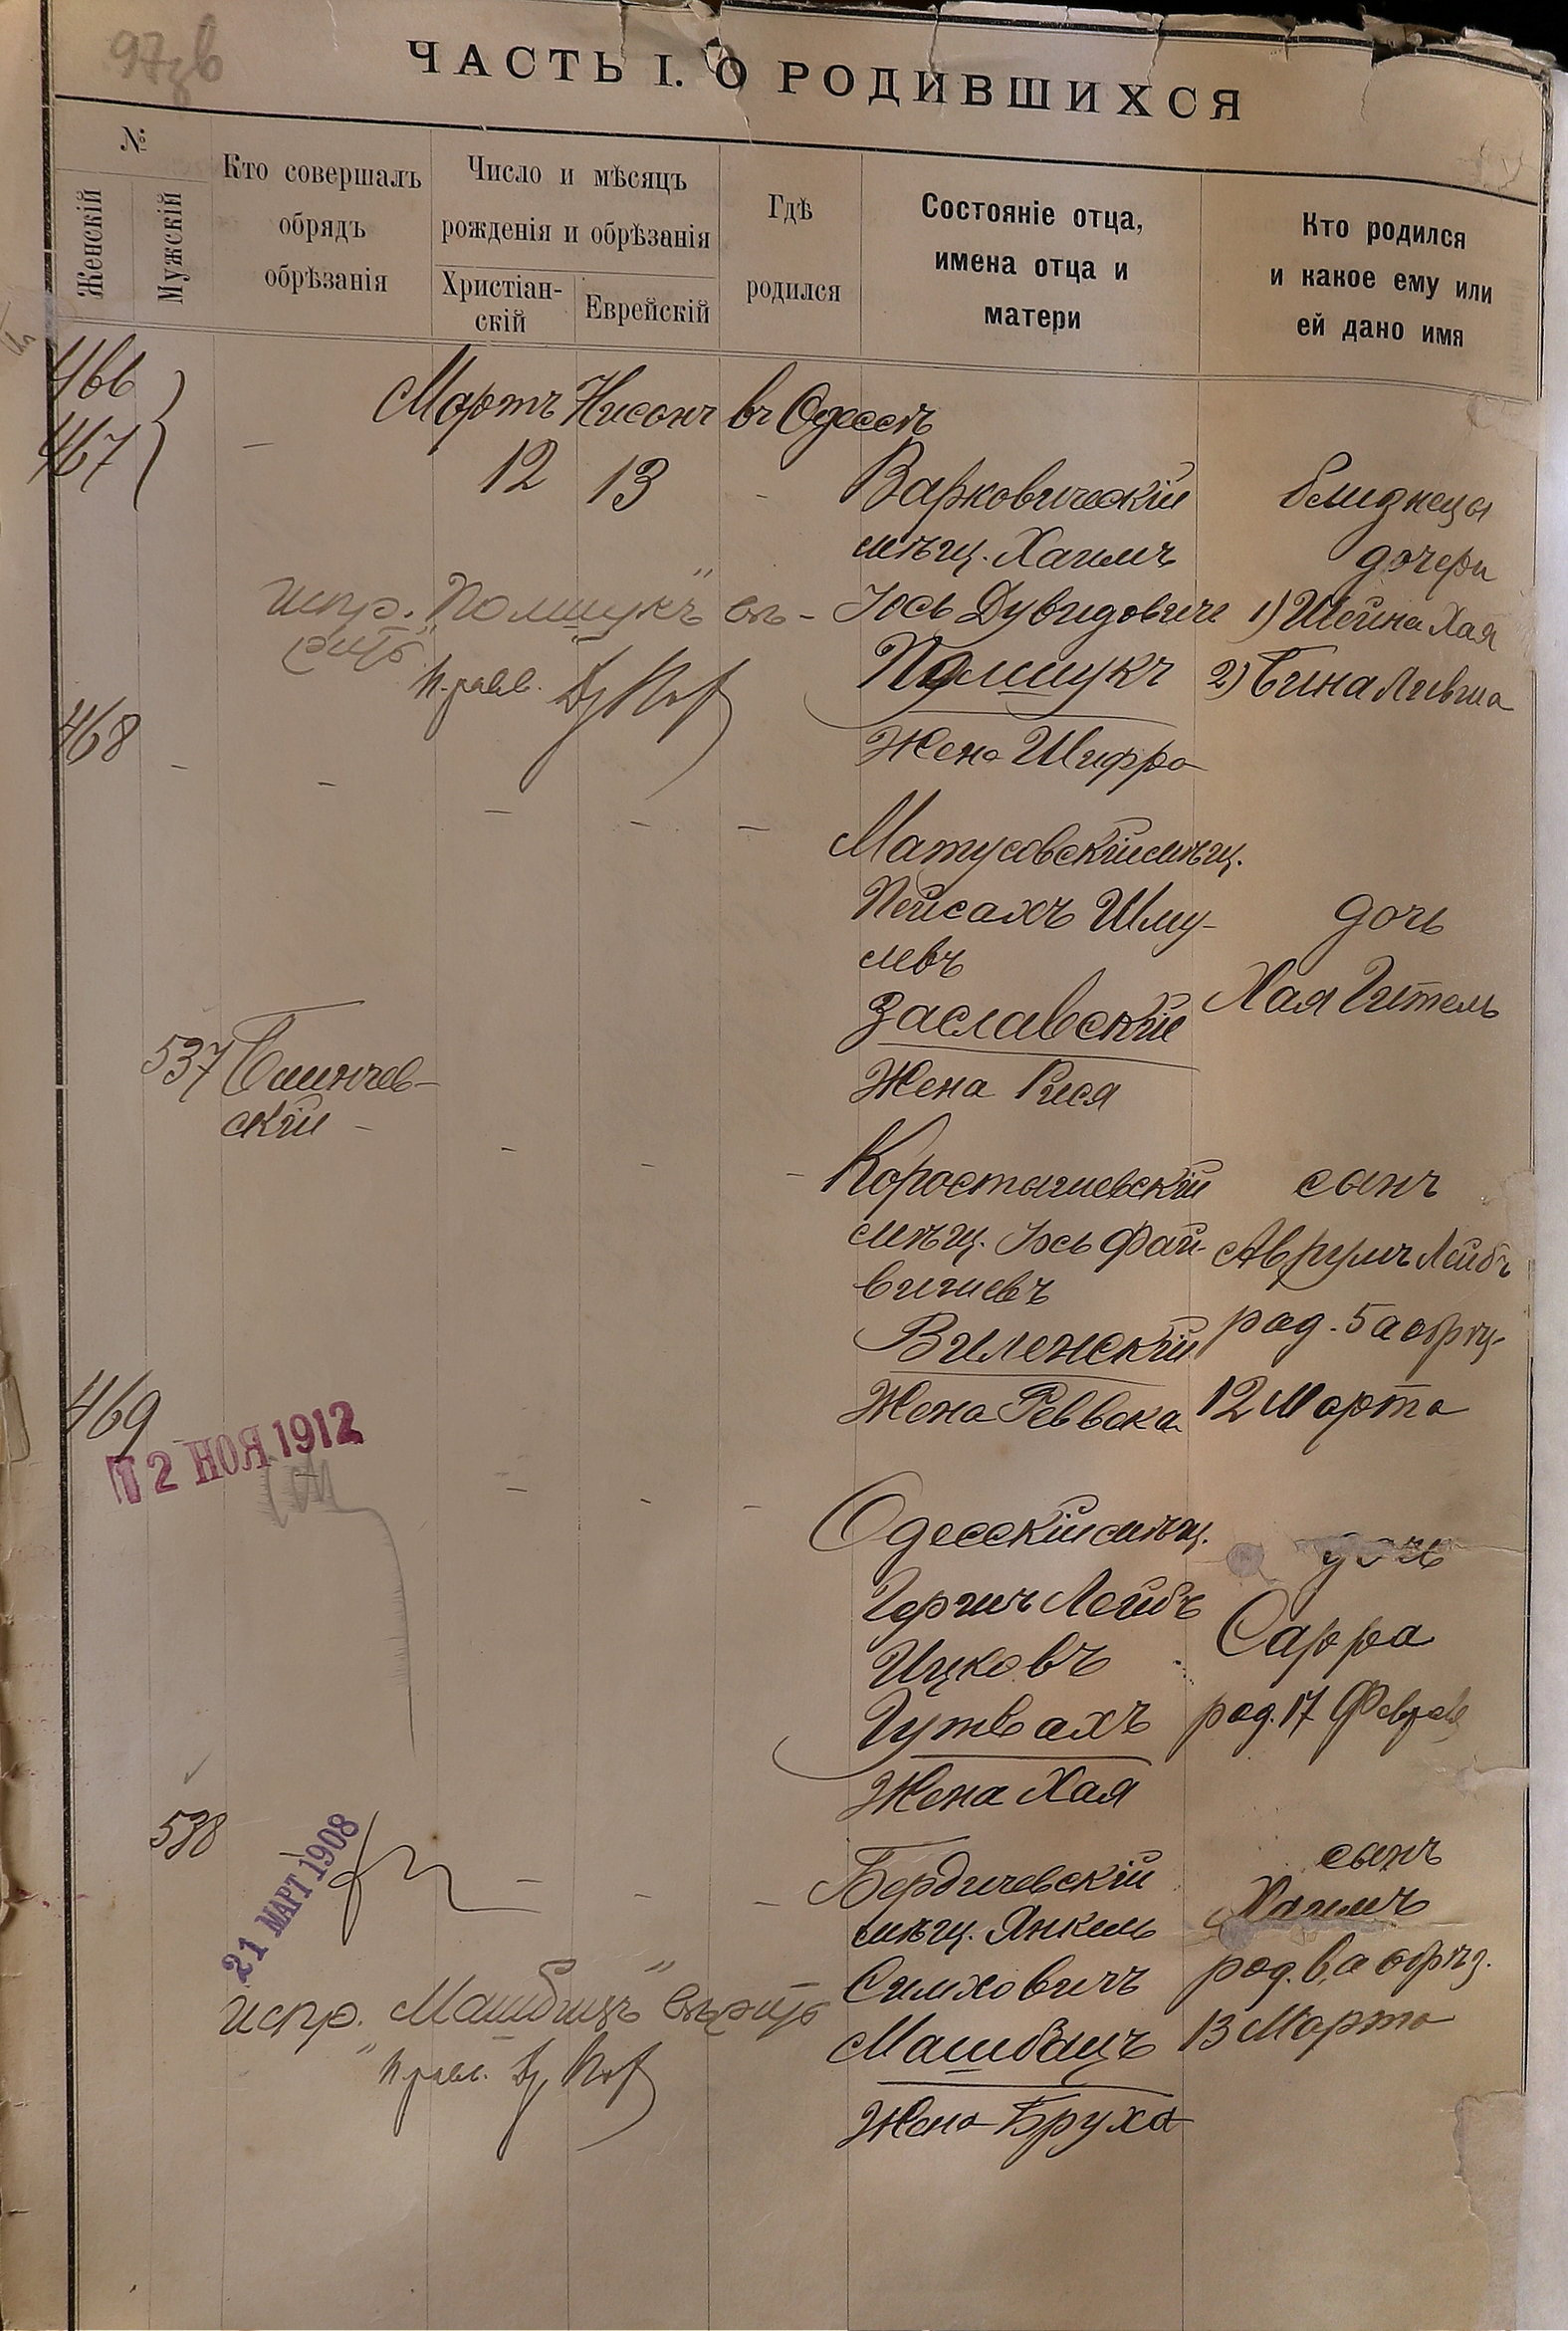 ЧАСТЬ I. О РОДИВШИХСЯ
№
Женскій
Мужскій
Кто совершалъ
обрядъ
обрѣзанія
Число и мѣсяцъ
рожденія и обрѣзанія
Христіан-
скій
Еврейскій
Гдѣ
родился
Состояніе отца,
имена отца и
матери
Кто родился
и какое ему или
ей дано имя
466
467
Мартъ Нисонъ въ Одессѣ
12 13
Варковическій
мѣщ. Хаимъ
Іось Дувидовичъ
Полищукъ
Жена Шифра
близнецы
дочери
1) Шейна Хая
2) Бина Ливша
испр. „Полищукъ" вѣ-
рить
468
Матусовскій мѣщ.
Пейсахъ Шму-
левъ
Заславскій
Жена Рися
дочь
Хая Гитель
537
скій
Коростышевскій
мѣщ. Іось Фай-
вишевъ
Виленскій
Жена Реввека
сынъ
Аврумъ Лейбъ
род. 5 а обрѣз.
12 Марта
469
12 НОЯ 1912
Одесскій мѣщ.
Гершъ Лейбъ
Ицковъ
Гутвахъ
Жена Хая
дочь
Сарра
род. 17 Феврал
538
21 МАРТ 1908
Бердичевскій
мѣщ. Янкель
Симховичъ
Машбицъ
Жена Бруха
сынъ
Хаимъ
род. 6, а обрѣз.
13 Марта
испр. „Машбицъ" вѣрить